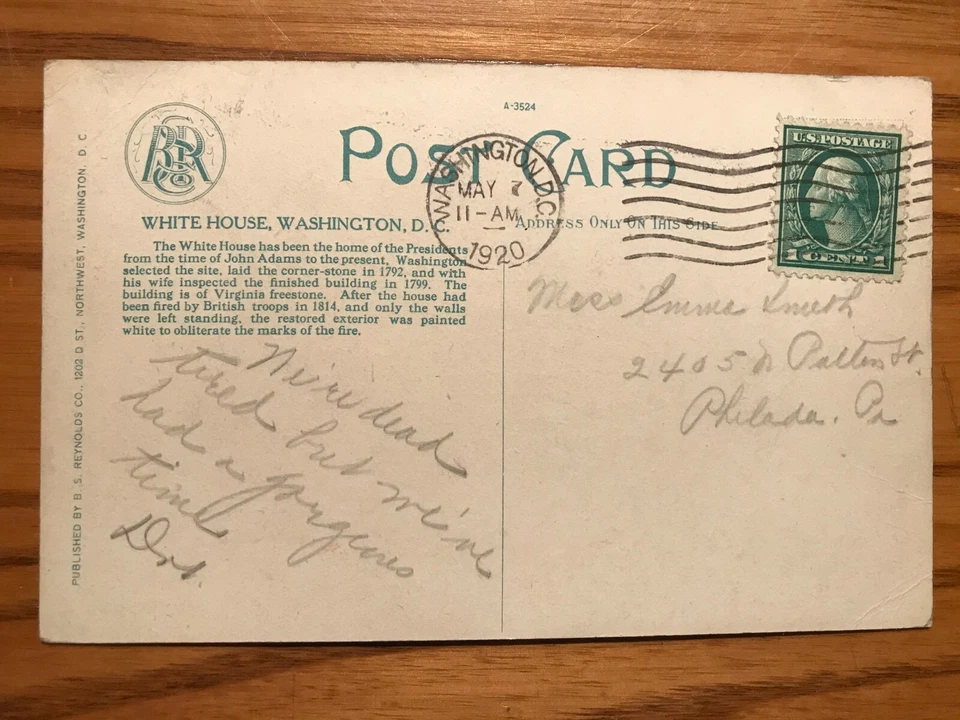 A-3524
POST CARD
WASHINGTON, D.C.
MAY 7
11-AM
1920
U.S. POSTAGE
1 CENT 1
BSR Co
WHITE HOUSE, WASHINGTON, D. C.
ADDRESS ONLY ON THIS SIDE
The White House has been the home of the Presidents
from the time of John Adams to the present, Washington
selected the site, laid the corner-stone in 1792, and with
his wife inspected the finished building in 1799. The
building is of Virginia freestone. After the house had
been fired by British troops in 1814, and only the walls
were left standing, the restored exterior was painted
white to obliterate the marks of the fire.
We're dead
tired but we've
had a gorgeous
time
Dot.
Miss Emma Smith
2405 N Patton St.
Philada. Pa
PUBLISHED BY B. S. REYNOLDS CO., 1202 D ST., NORTHWEST, WASHINGTON, D. C